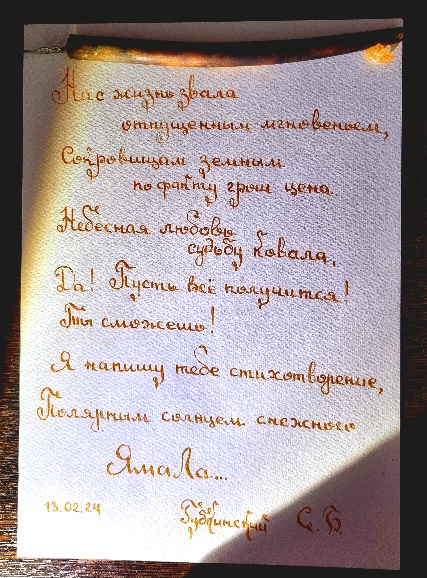 Нас жизнь звала
отпущенным мгновеньем,
Сокровищам земным
по факту грош цена.
Небесная любовь
судьбу ковала,
Да! Пусть всё получится!
Ты сможешь!
Я напишу тебе стихотворение,
Полярным солнцем снежного
Ямала...
13.02.24 Губкинский С.Б.